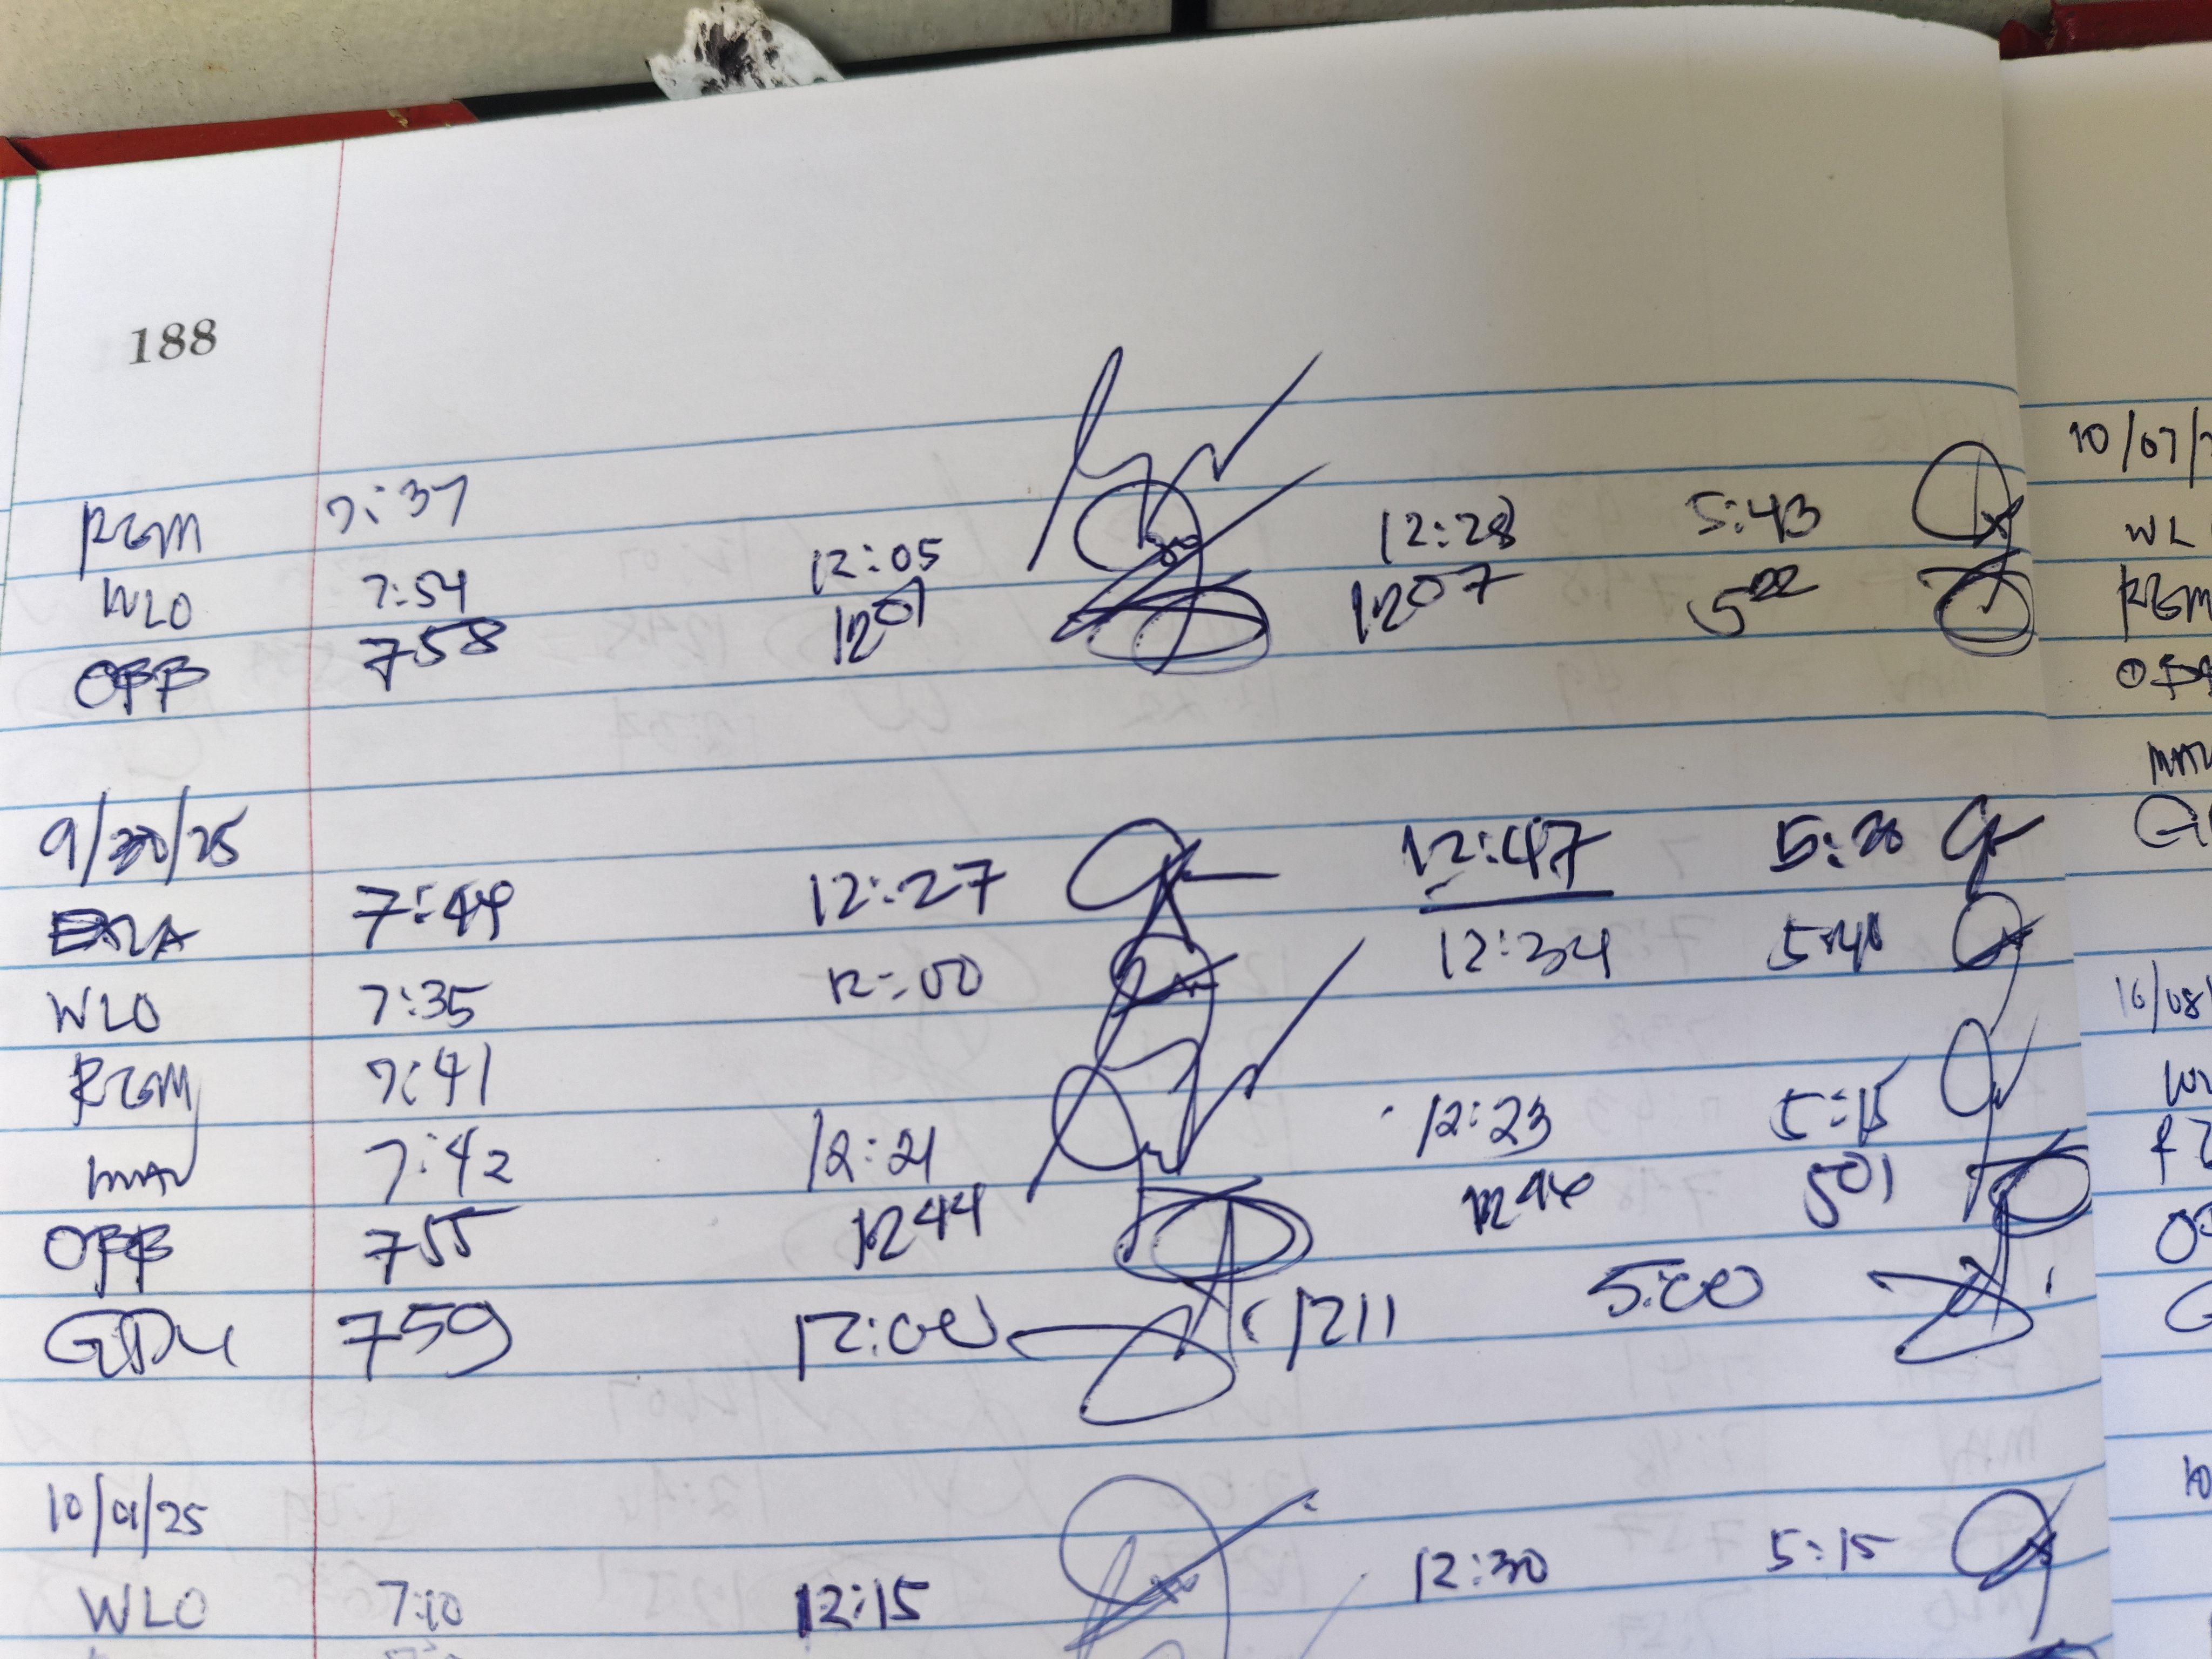 188
RGM 7:37
WLO 7:54 12:05 12:28 5:43
OPB 7 58 12 01 12 07 5 22
9/30/25
7:44 12:27 12:47 5:20
WLO 7:35 12:00 12:34 5:40
RGM 7:41
MAV 7:42 12:21 12:23 5:15
OPB 7 55 12 44 12 46 5 01
GDU 7 59 12:00 1211 5:00
10/01/25
WLO 7:10 12:15 12:30 5:15
10/07/
WL
RGM
MAV
10/08